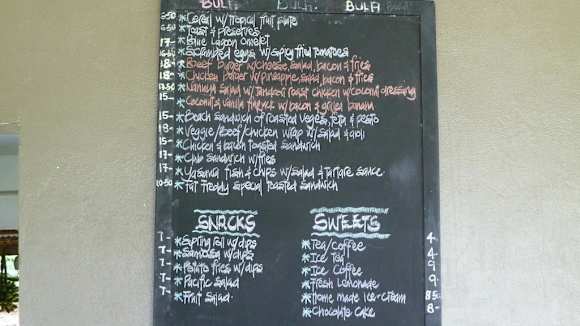 BULA BULA BULA
6-50 * Cereal w/tropical fruit plate
6-50 * Toast & preserves
17- * Blue Lagoon omelet
16- * Scrambled eggs w/spicy fried tomatoes
18- * Beef burger w/cheese, salad, bacon & fries
18- * Chicken burger w/pineapple, salad, bacon & fries
17-50 * salad w/ tandoori roast chicken w/coconut dressing
15- * Coconut & vanilla w/ bacon & grilled banana
15- * Beach sandwich of roasted veges, feta & pesto
18- * Veggie/Beef/chicken wrap w/ salad & aioli
15- * Chicken & bacon toasted sandwich
17- * Club sandwich w/fries
17- * Yasawa fish & chips w/salad & tartare sauce
10-50 * Fat Freddy special toasted sandwich
SNACKS
7- * Spring roll w/dips
7- * Samoosa w/dips
7- * Potato fries w/dips
7- * Pacific salad
7- * Fruit salad
SWEETS
* Tea/coffee 4
* Ice Tea 4
* Ice Coffee 9
* Fresh Lemonade 9
* Home made ice-cream 8-50
* Chocolate cake 8-